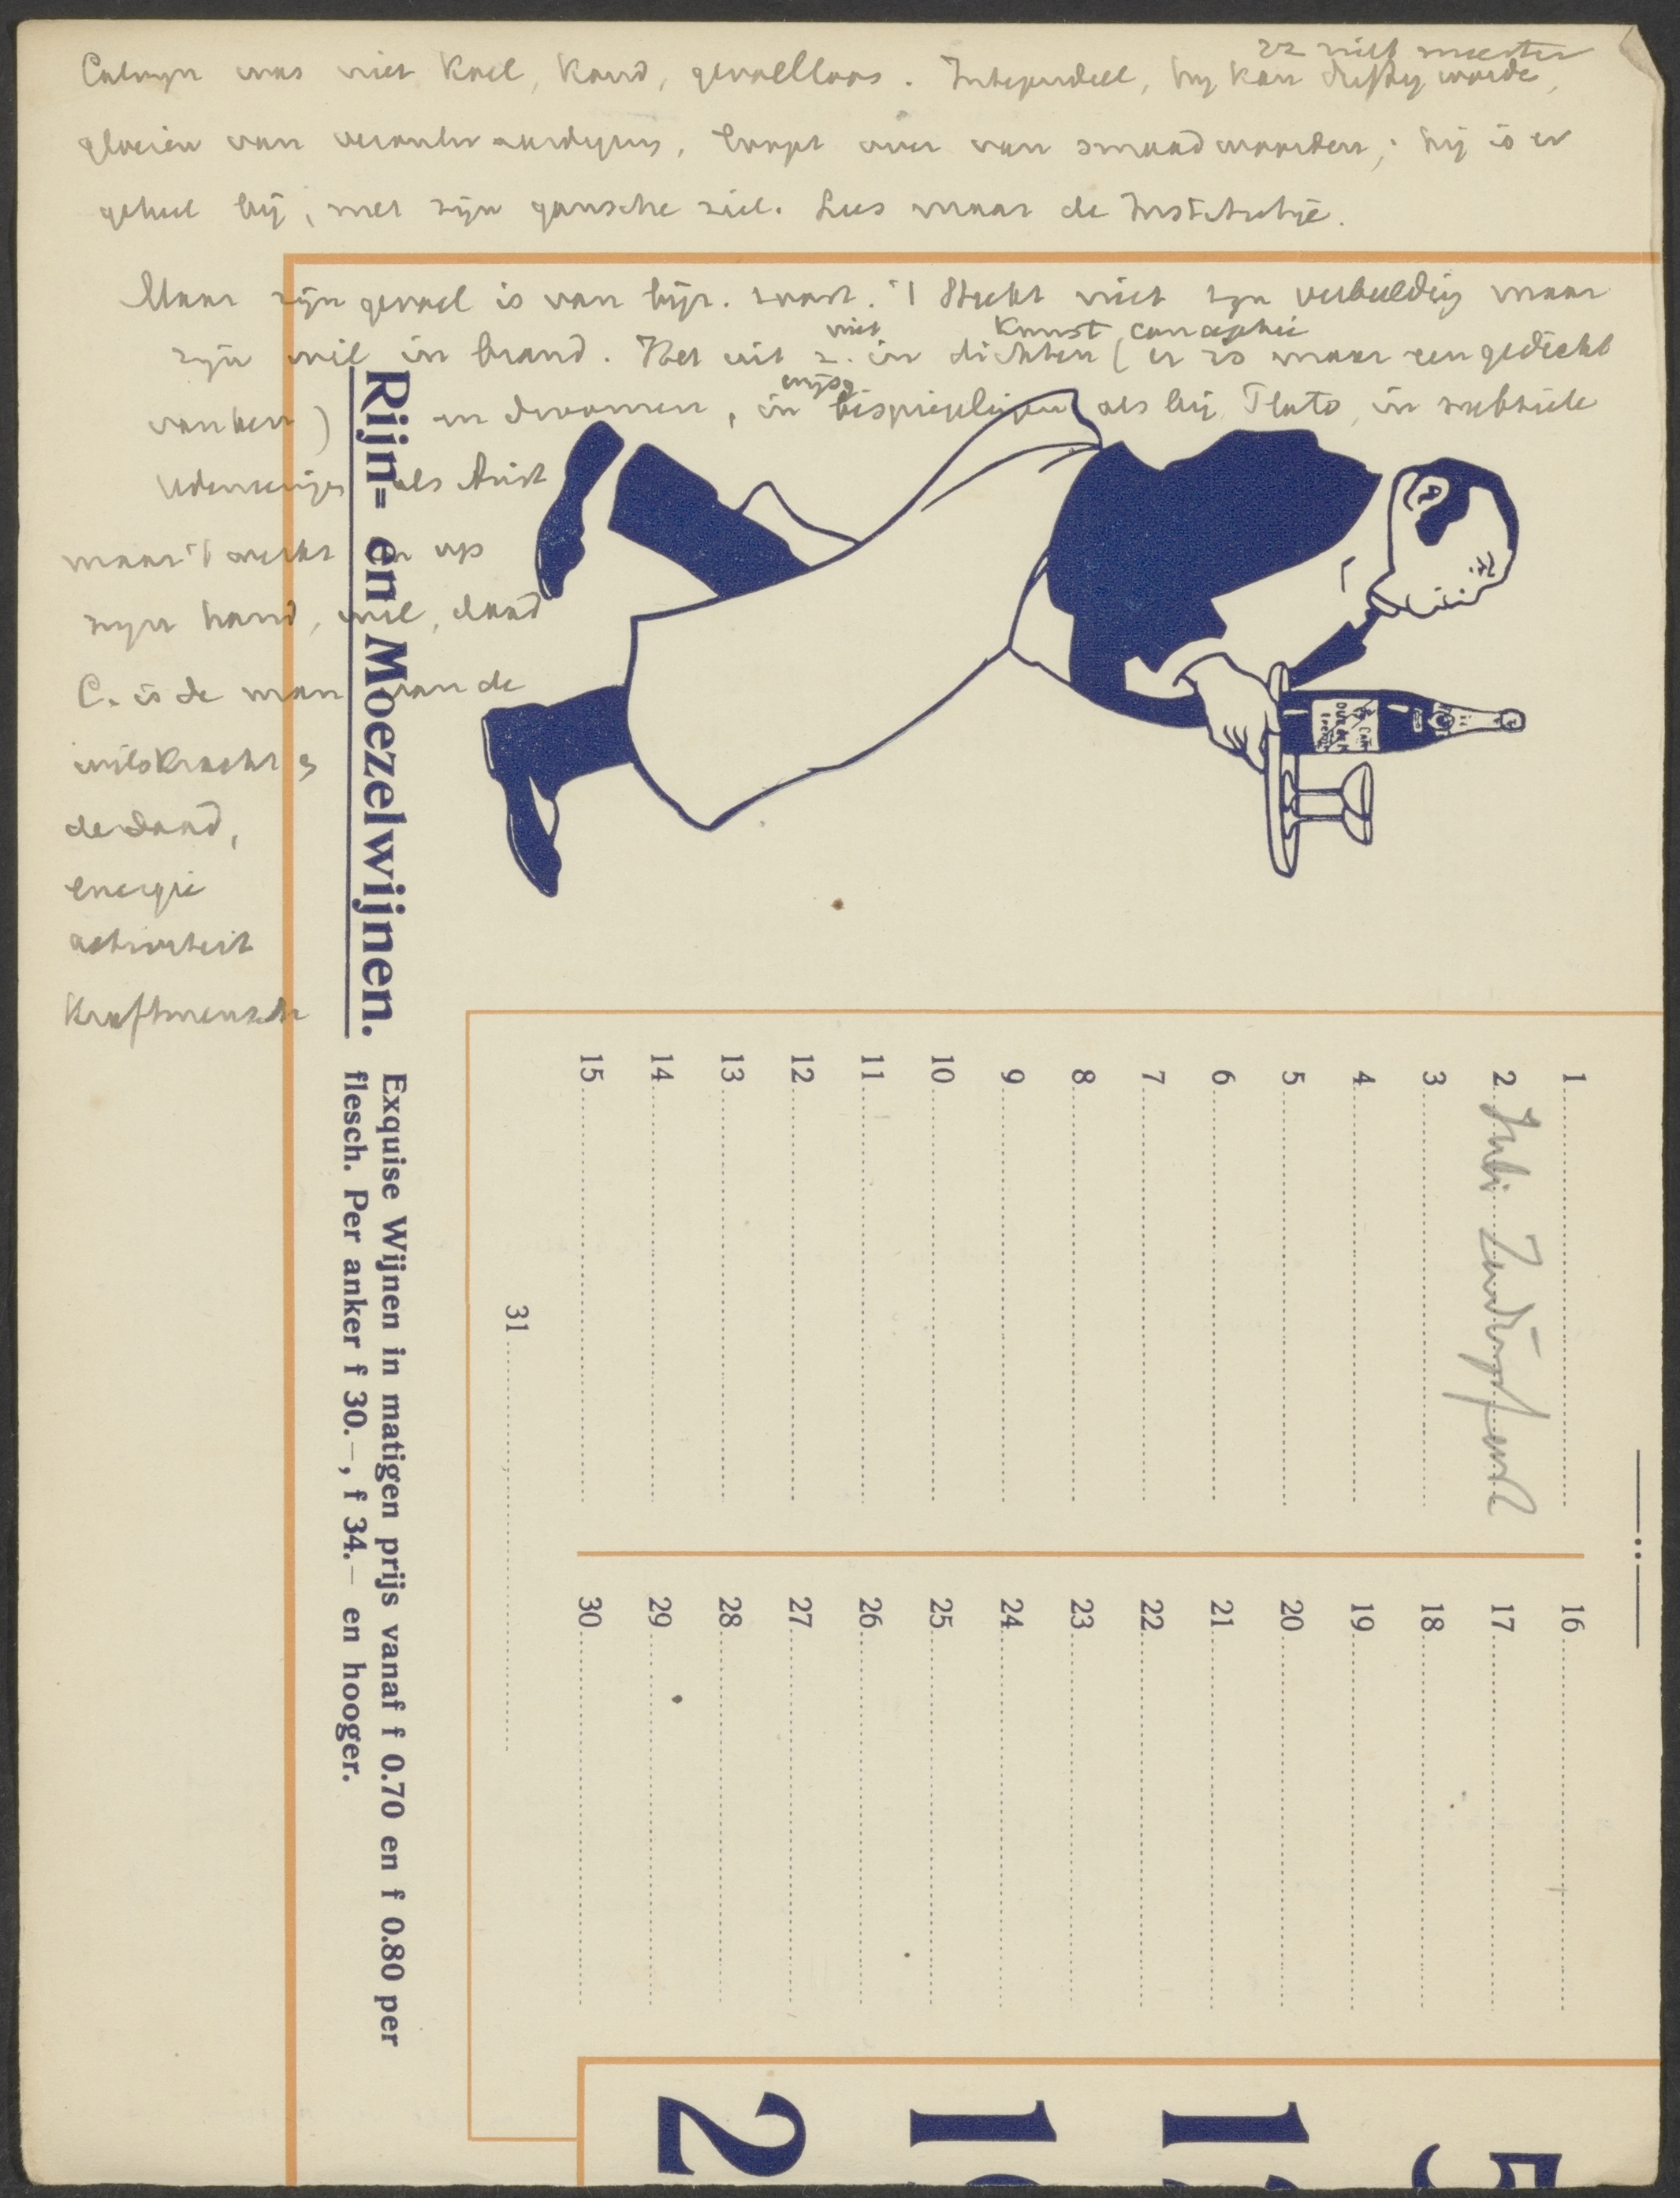 zz niet meester
Calvyn was niet koel, koud, gevoelloos. Integendeel, hy kan driftig worde,
gloeien van verontwaardiging, loopt over van smaadwoorden; hij is er
geheel bij, met zijn gansche ziel. Lees maar de Institutie.
Maar zijn gevoel is van bijz. soort. 't Steekt niet zyn verbeeldig maar
niet Kunst, conceptie
zyn wil in brand. Het uit z. in dichten (er is maar een gedicht
van hem) in droomen, in bespiegelingen als bij Plato, in subtiele
als Arist
maar 't werkt in op
zyn hand, wil, daad
C. is de man van de
wilskracht
de daad,
energie
activiteit
Kraftmensch
Rijn= en Moezelwijnen.
Exquise Wijnen in matigen prijs vanaf f 0.70 en f 0.80 per
flesch. Per anker f 30.—, f 34.— en hooger.
1
2
3
4
5
6
7
8
9
10
11
12
13
14
15
16
17
18
19
20
21
22
23
24
25
26
27
28
29
30
31
5
2